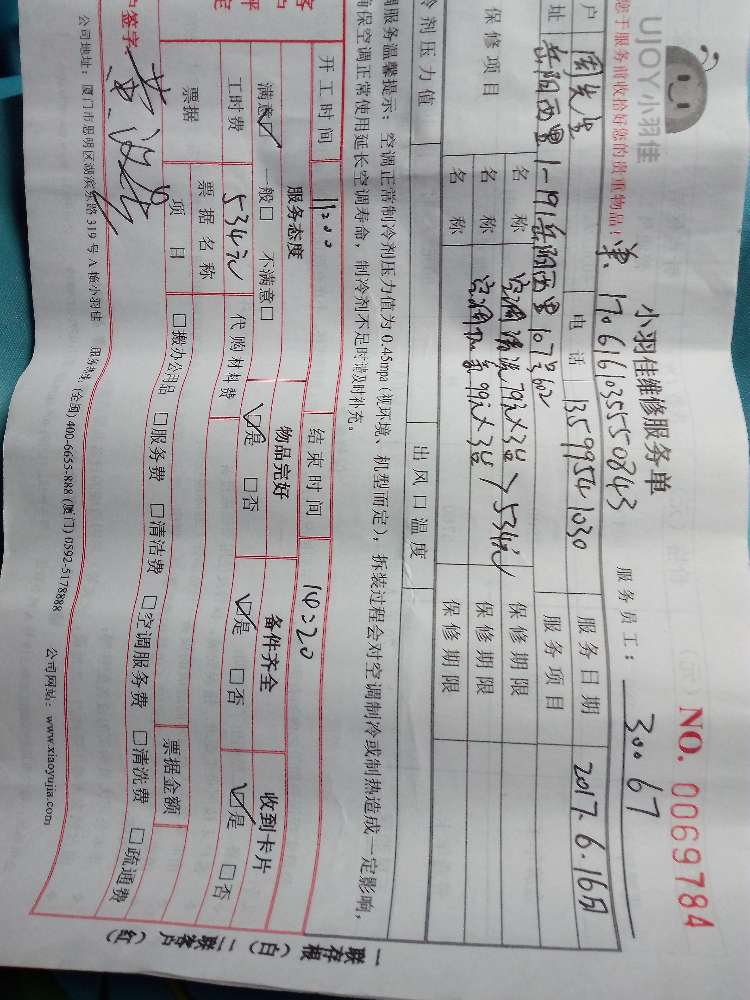 UJOY 小羽佳
小羽佳维修服务单
NO. 0069784
单 170616103550843
服务员工: 30067
您于服务前收拾好您的贵重物品!
户 周先生 电话 13599541030 服务日期 2017.6.16日
址 岳阳西里1-191岳阳西里107号602 服务项目
保修项目
名称 空调清洗79元×3台 保修期限
名称 空调加氟99元×3台 >534元 保修期限
名称 保修期限
冷剂压力值 出风口温度
调服务温馨提示: 空调正常制冷剂压力值为0.45mpa (视环境、机型而定), 拆装过程会对空调制冷或制热造成一定影响,
确保空调正常使用延长空调寿命, 制冷剂不足时请及时补充。
开工时间 11:00 结束时间 14:20
服务态度 物品完好 备件齐全 收到卡片
满意☑ 一般□ 不满意□ ☑是 □否 ☑是 □否 ☑是 □否
工时费 534元 代购材料费
票据 票据名称 票据金额
项目 □搬办公用品 □服务费 □清洁费 □空调服务费 □清洗费 □疏通费
户签字:
公司地址: 厦门市思明区湖滨东路319号A栋小羽佳 服务热线: (全国) 400-6655-888 (厦门) 0592-5178888 公司网站: www.xiaoyujia.com
一联存根 (白) 二联客户 (红)